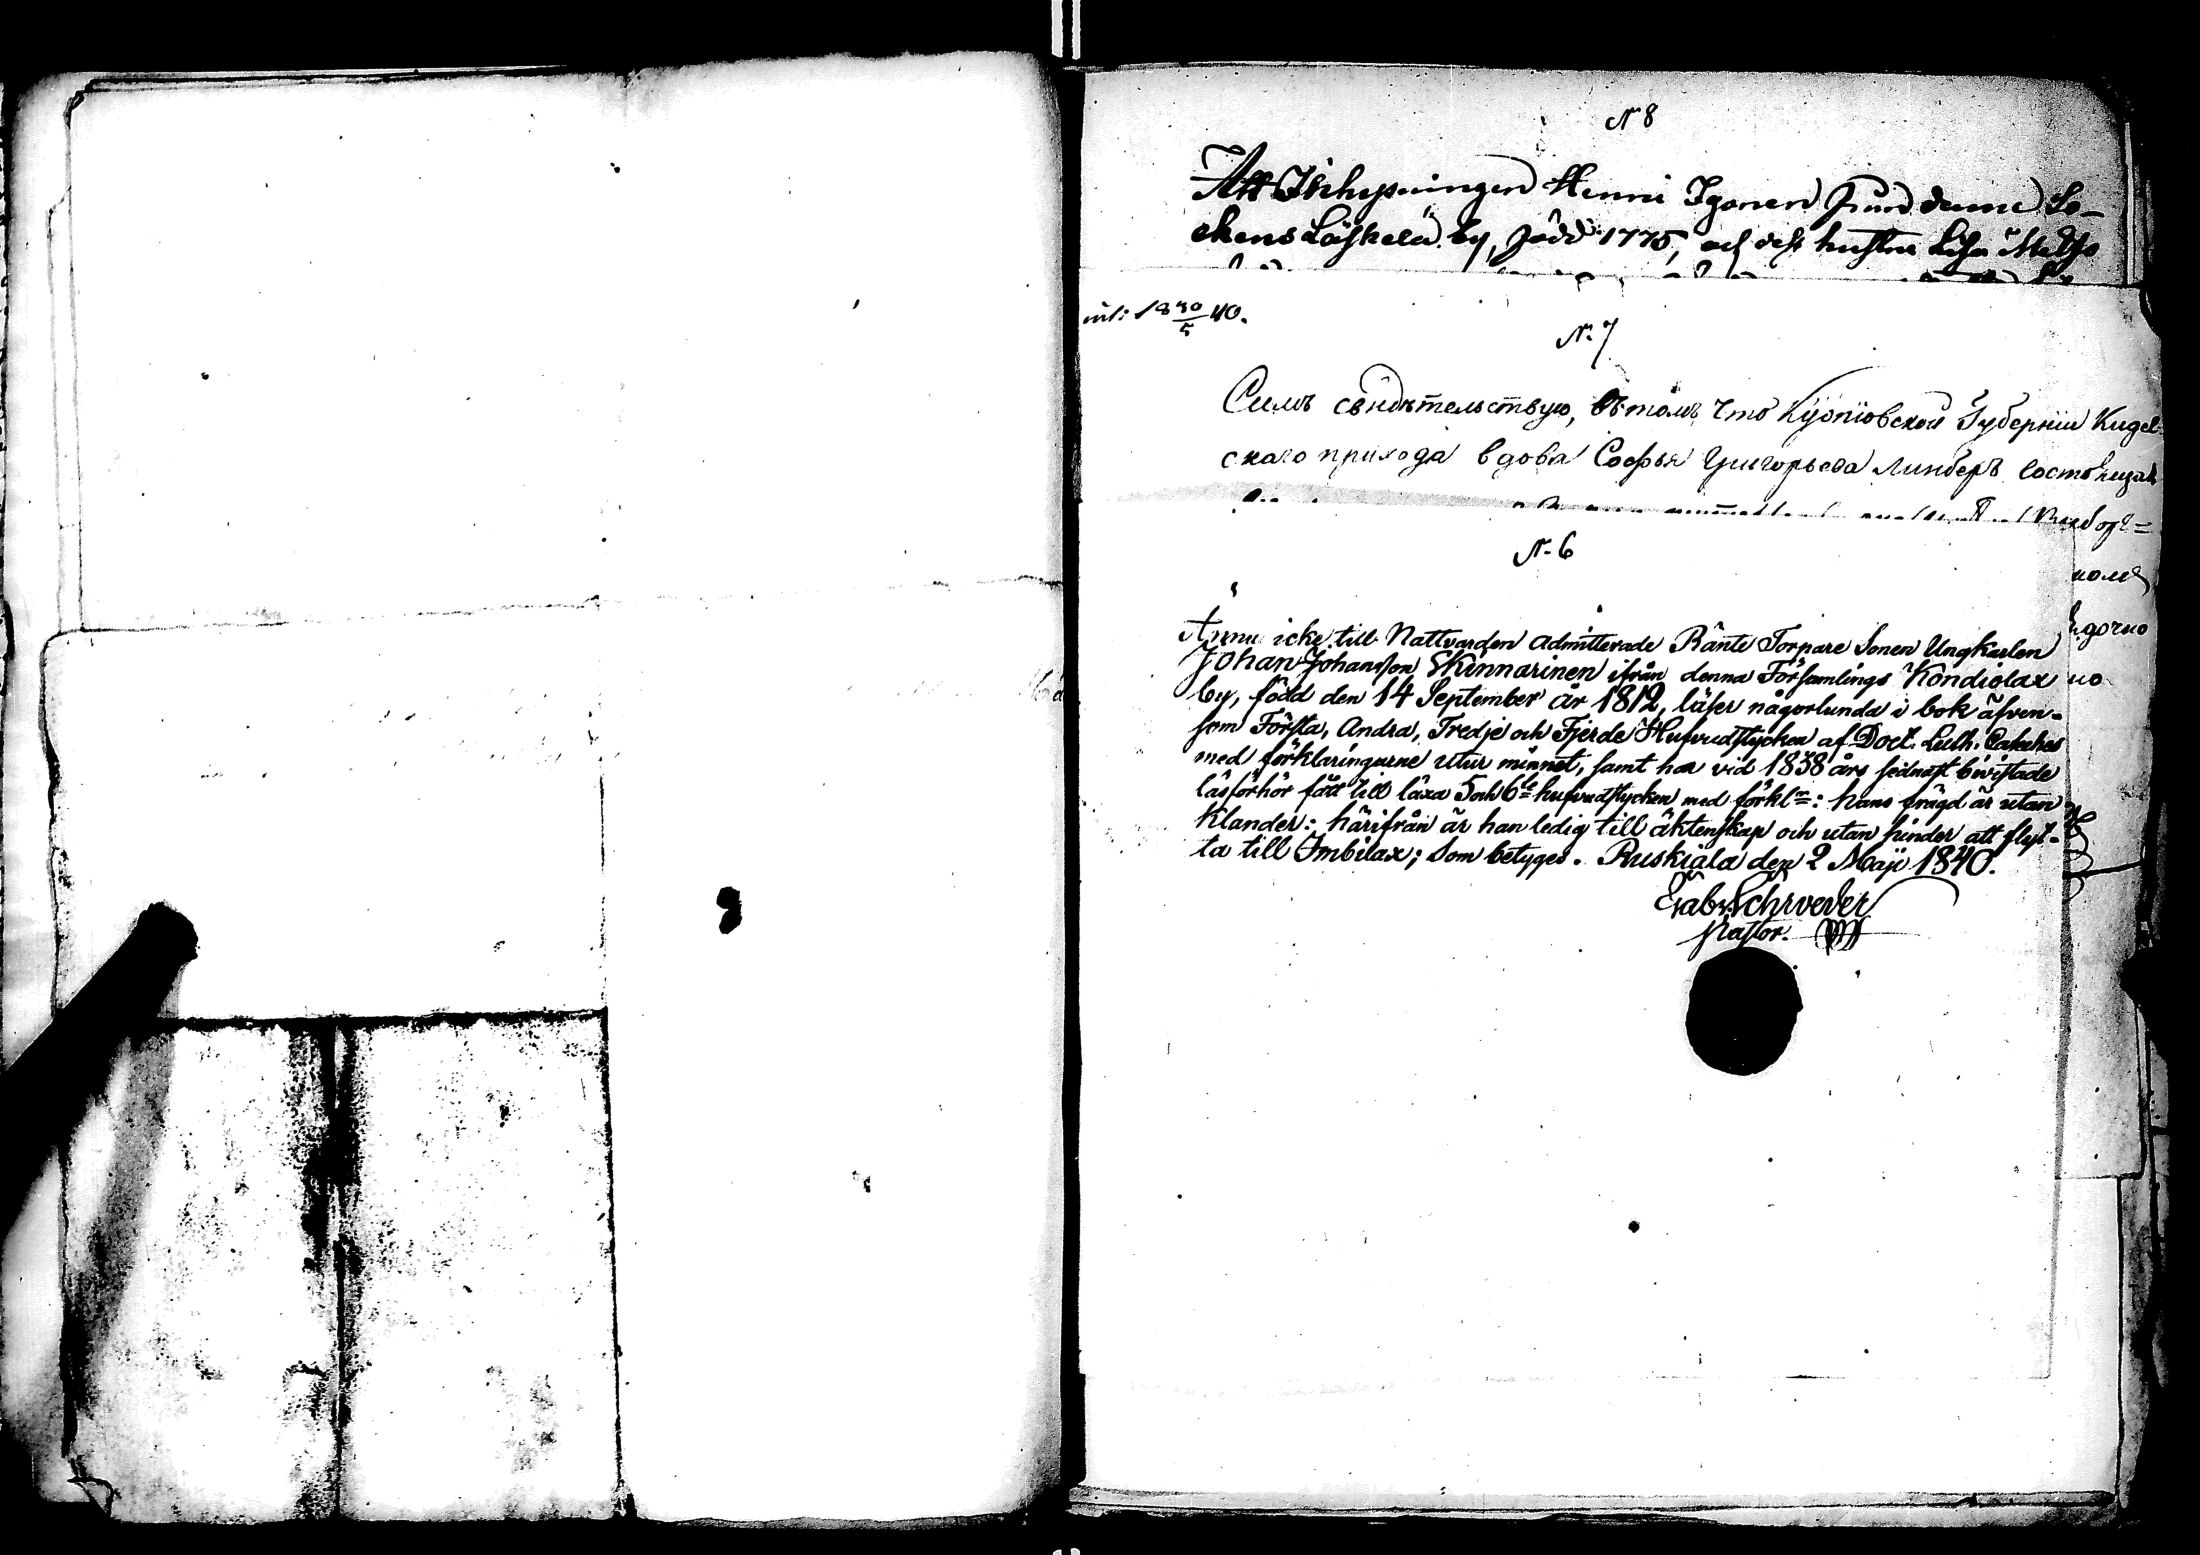 N 8
Att Inhysningen Henric Igonen från denne So-
ckens Läskelä by, född 1775, och dess hustru Lisa Matsd
int: 18 30/5 40.
N. 7
Симъ свидѣтельствую, въ томъ что Куопiовской Губернiи Кидел-
скаго прихода вдова Софья Григорьева Линберъ
N. 6
Ännu icke till Nattvarden admitterade Ränte Torpare Sonen Ungkarlen
Johan Johansson Skinnarinen ifrån denna Församlings Kondiolax
by, född den 14 September år 1812, läser någorlunda i bok äfven-
som Första, Andra, Tredje och Fjerde Hufvudstycken af Doct. Luth. Cateches
med förklaringarne utur minnet, samt har vid 1838 års sednast bivistade
läsförhör fått till läxa 5 och 6te hufvudstycken med förkl:n: hans frägd är utan
klander; härifrån är han ledig till äktenskap och utan hinder att flyt-
ta till Imbilax; som betyges. Ruskiala den 2 Maji 1840.
Gabr. Schrveder
Pastor.